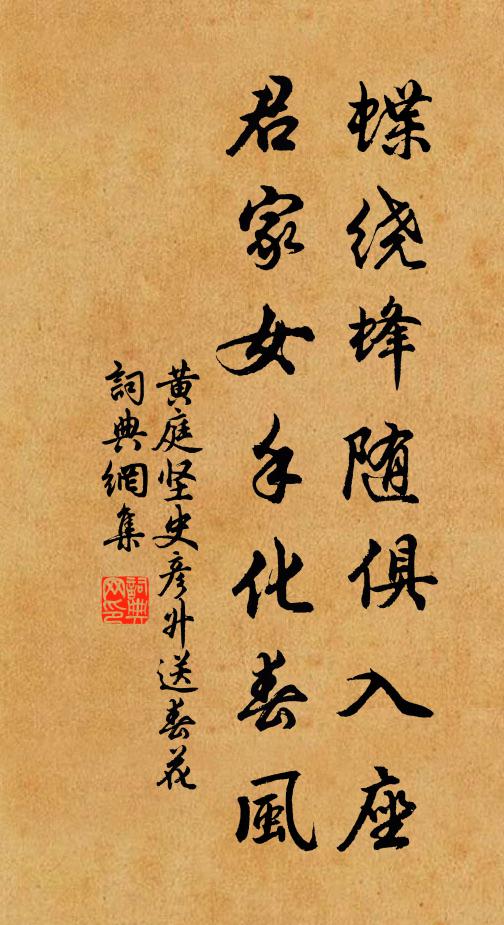 蝶绕蜂随俱入座
君家女手化春風
黄庭坚史彦升送春花
詞典網集
詞典网印